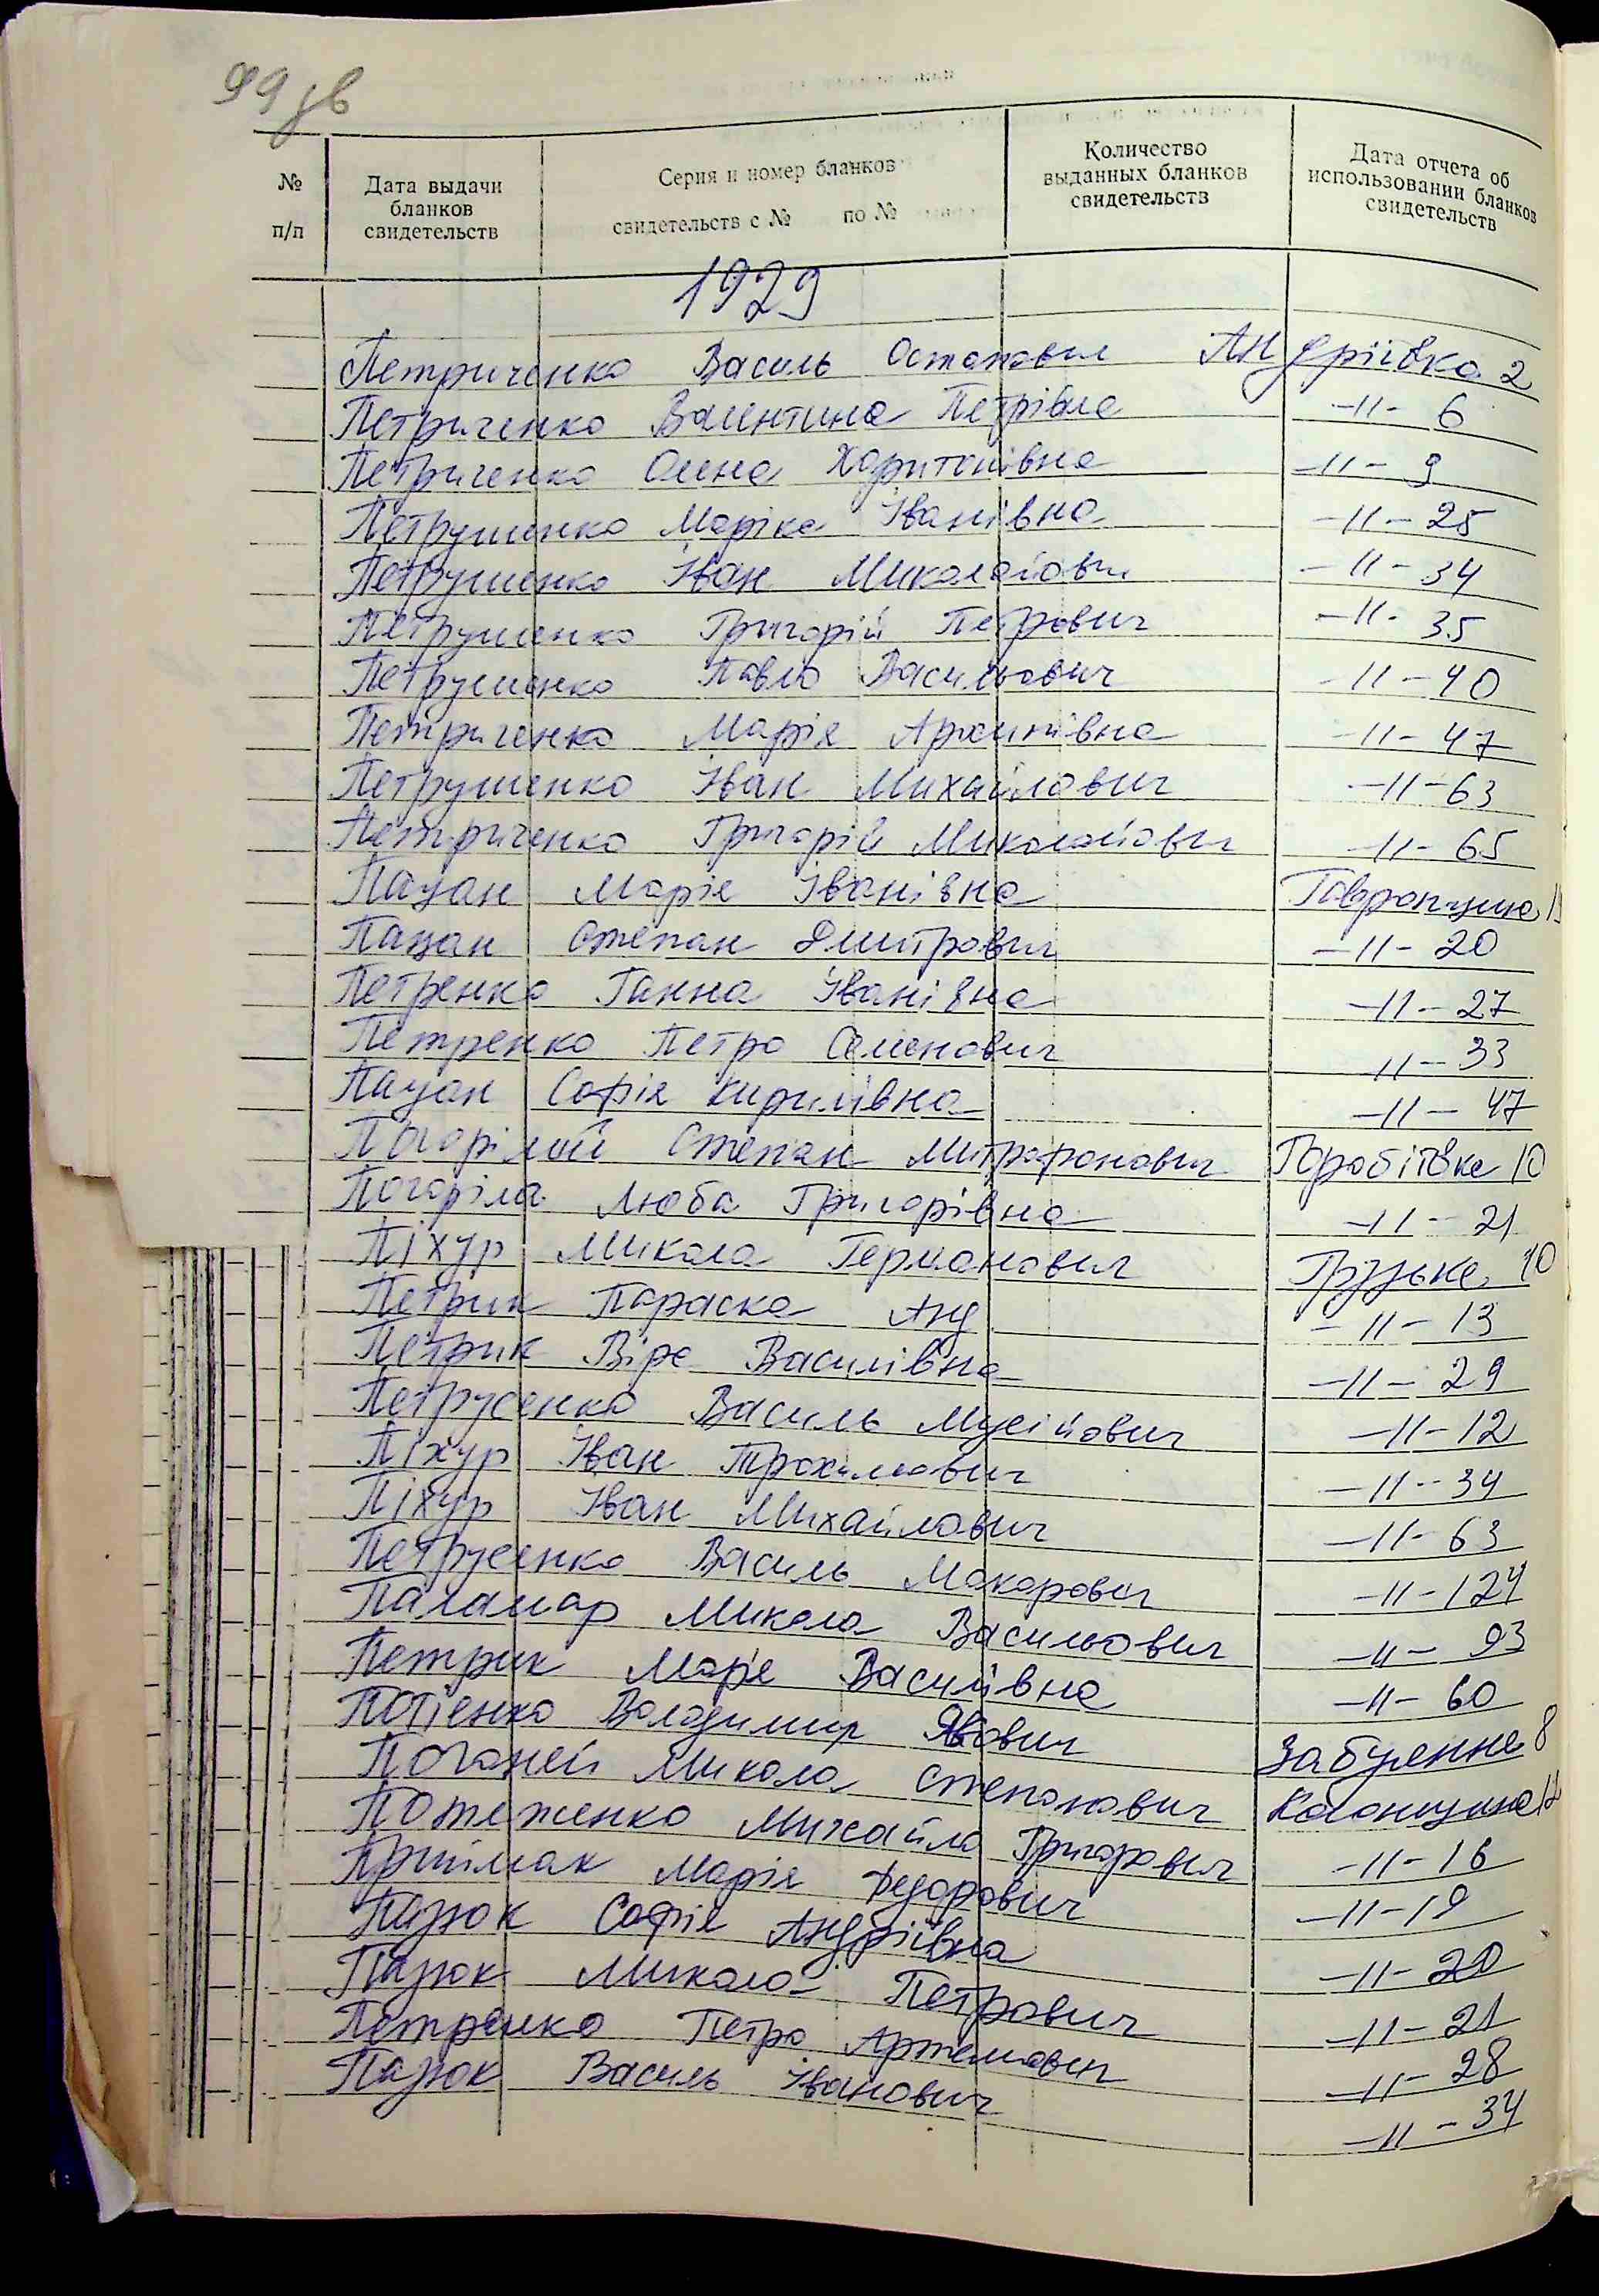 99 зв
№ п/п
Дата выдачи бланков свидетельств
Серия и номер бланков свидетельств с № по №
Количество выданных бланков свидетельств
Дата отчета об использовании бланков свидетельств
1929
Петриченко Василь Остапович Андріївка 2
Петриченко Валентина Петрівна -11- 6
Петриченко Олена Харитонівна -11- 9
Петрушенко Маріка Іванівна -11- 25
Петрушенко Іван Миколайович -11- 34
Петрушенко Григорій Петрович -11- 35
Петрушенко Павло Васильович -11- 40
Петриченко Марія Архипівна -11- 47
Петрушенко Іван Михайлович -11- 63
Петриченко Григорій Миколайович -11- 65
Пацан Марія Іванівна Гавронщина
Пацан Степан Дмитрович -11- 20
Петренко Ганна Іванівна -11- 27
Петренко Петро Семенович -11- 33
Пацан Софія Кирилівна -11- 47
Погорілий Степан Митрофанович Горобіївка 10
Погоріла Люба Григорівна -11- 21
Піхур Микола Германович Грузьке 10
Петрик Параска Анд -11- 13
Петрик Віра Василівна -11- 29
Петрусенко Василь Мусійович -11- 12
Піхур Іван Трохимович -11- 34
Піхур Іван Михайлович -11- 63
Петрусенко Василь Макарович -11- 124
Паламар Микола Васильович -11- 93
Петрик Марія Василівна -11- 60
Потієнко Володимир Явович Забуяння 8
Поганей Микола Степанович Колонщина 12
Потеженко Михайло Григорович -11- 16
Приймак Марія Федорович -11- 19
Пазюк Софія Андріївна -11- 20
Пазюк Микола Петрович -11- 21
Петренко Петро Артемович -11- 28
Пазюк Василь Іванович -11- 34